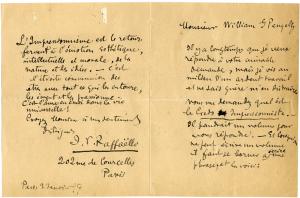 Monsieur William G Pengelly
Il y a longtemps que je veux
répondre à votre aimable
demande, mais je vis au
milieu d'un ardent travail
et ne sais guère ni en
Vous me demandez quel est
le Credo Impressionniste.
Il faudrait un volume pour
vous répondre. Et lorsqu'on
ne peut écrire un volume
il faut se borner à une
phrase, et la voici:
L'Impressionnisme est le retour
fervent à l'émotion esthétique,
intellectuelle et morale, de la
nature et les choses. — C'est
l'étroite communion des
êtres avec tout ce qui les entoure,
les
C'est dans la vie
universelle!
Croyez Monsieur à mes sentiments
distingués
J. F. Raffaëlli
202 rue de Courcelles
Paris
Paris